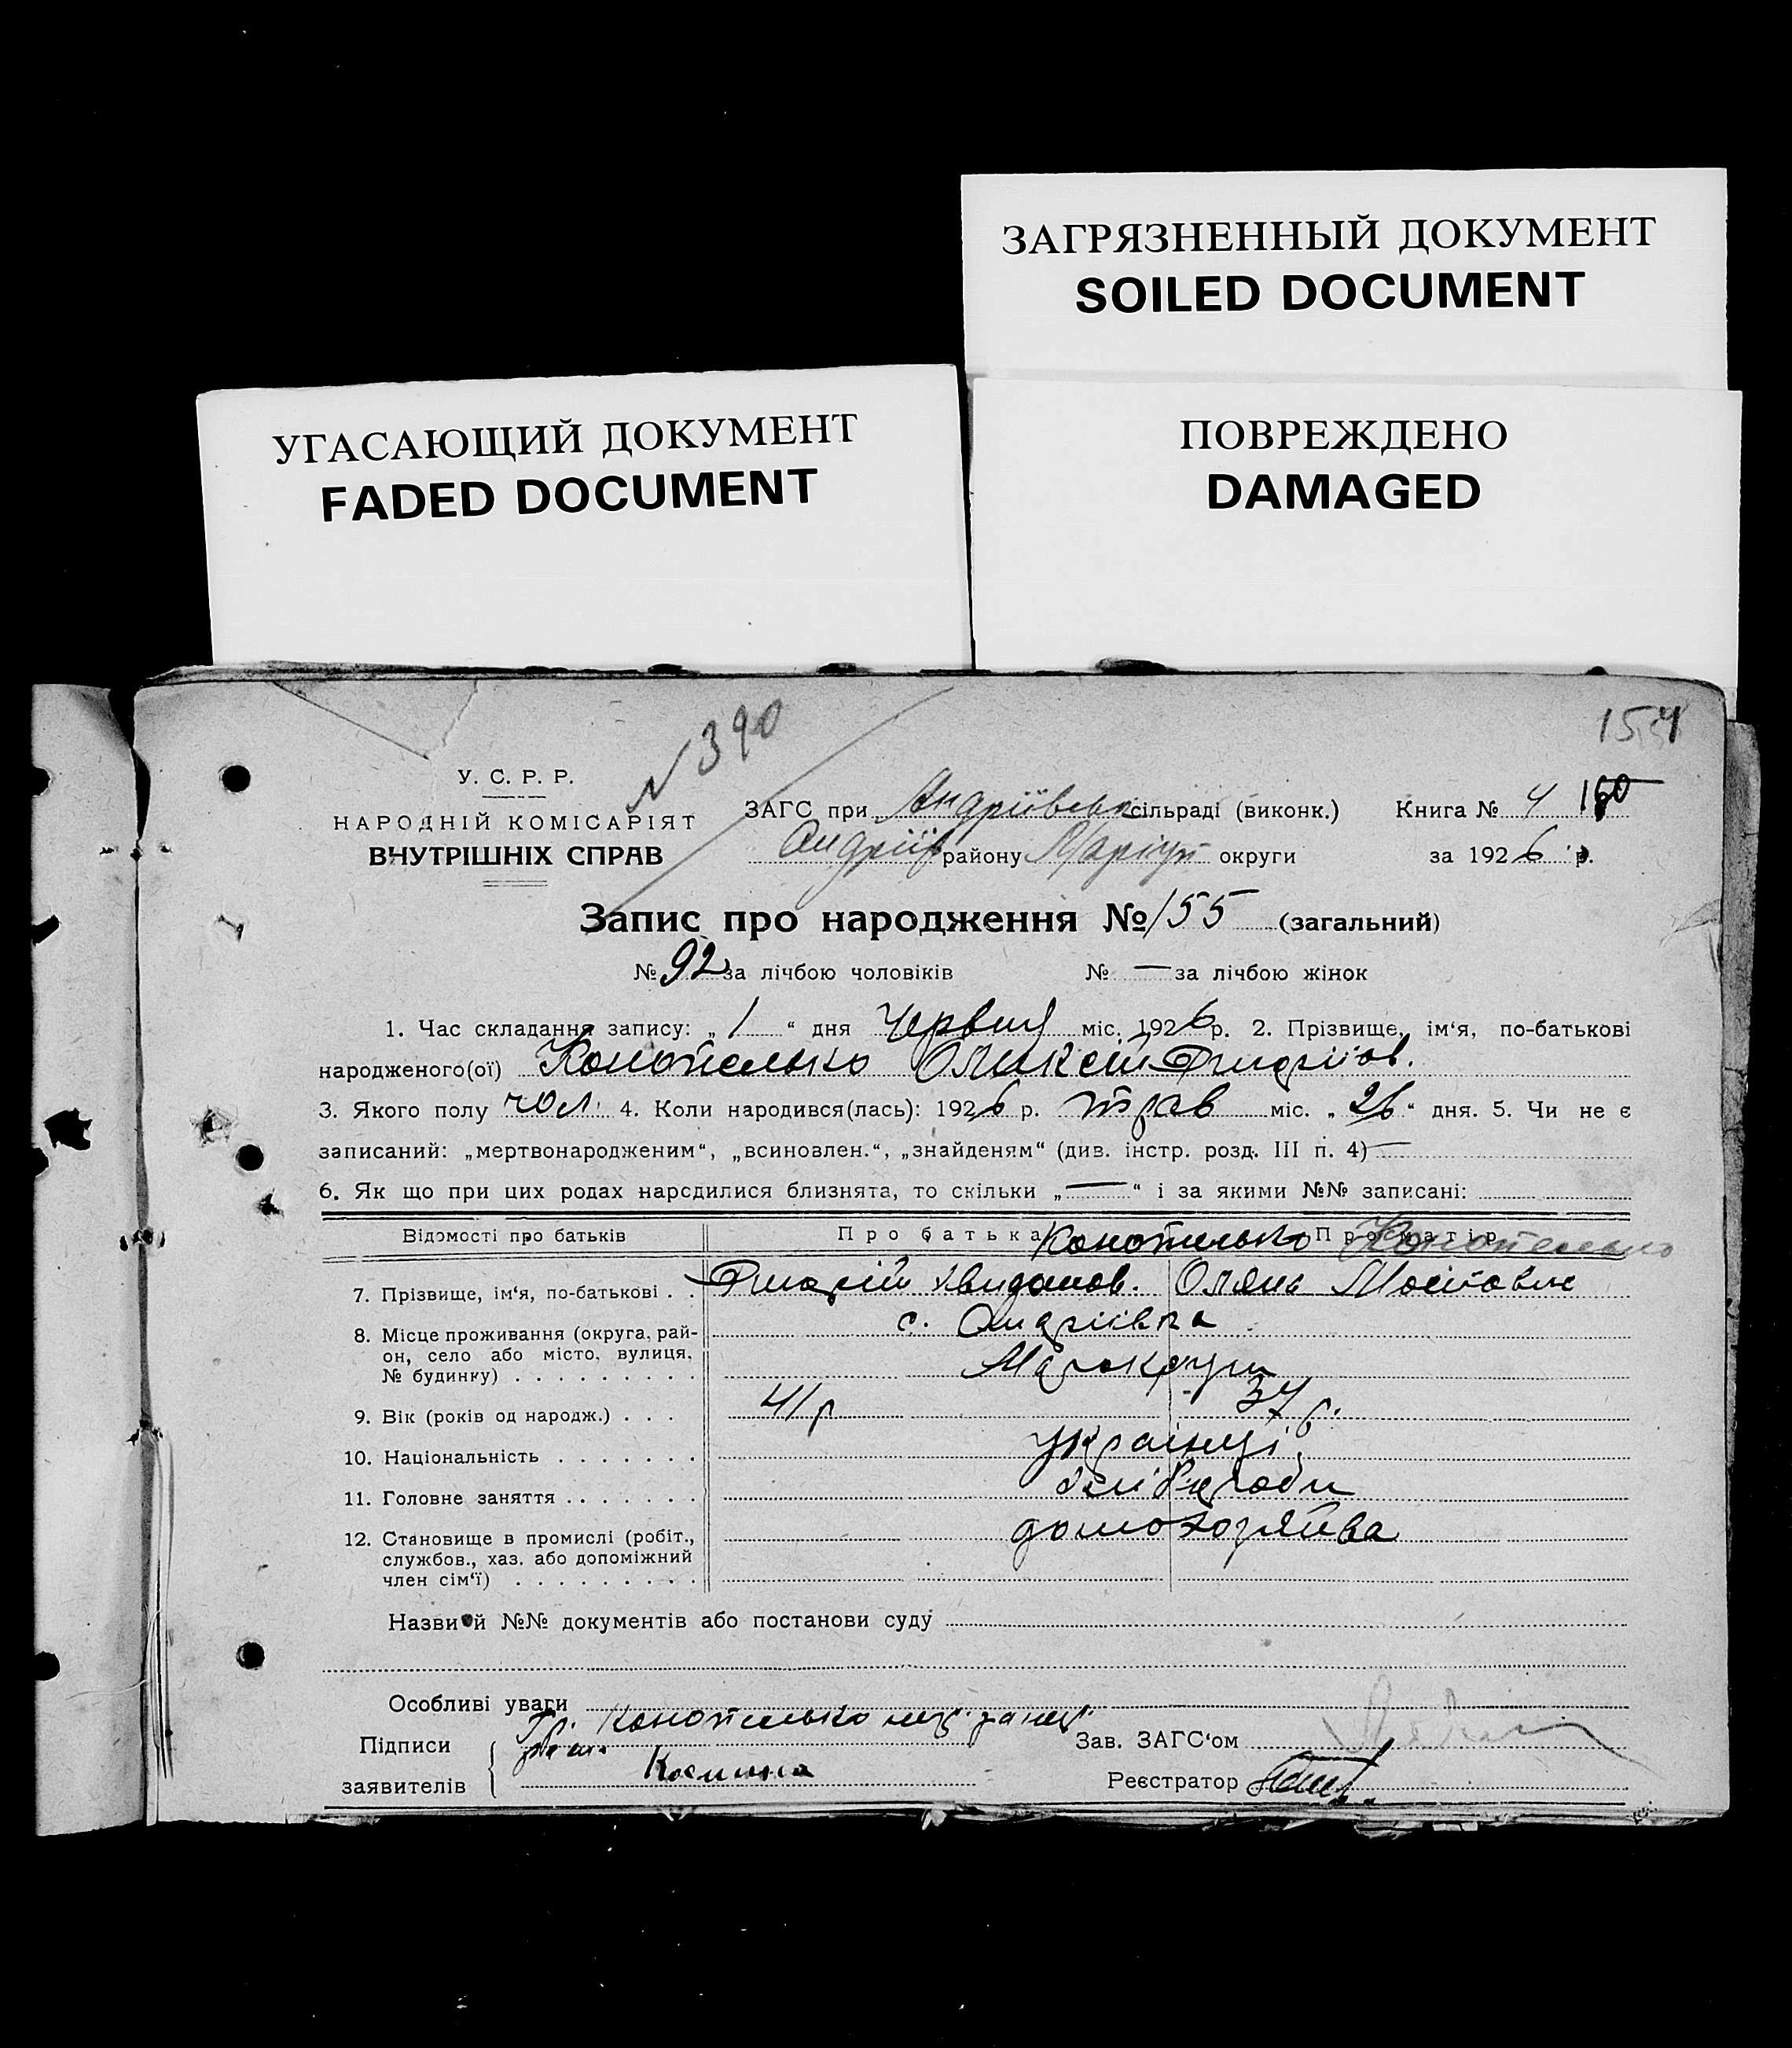 ЗАГРЯЗНЕННЫЙ ДОКУМЕНТ
SOILED DOCUMENT
УГАСАЮЩИЙ ДОКУМЕНТ
FADED DOCUMENT
ПОВРЕЖДЕНО
DAMAGED
N 390
154
У. С. Р. Р.
НАРОДНІЙ КОМІСАРІЯТ
ВНУТРІШНІХ СПРАВ
ЗАГС при Андріївськ сільраді (виконк.) Книга № 4
Андріїв району Маріуп округи за 1926 р.
Запис про народження № 155 (загальний)
№ 92 за лічбою чоловіків № — за лічбою жінок
1. Час складання запису: „1“ дня Червня міс. 1926 р. 2. Прізвище, ім‘я, по-батькові
народженого(ої) Конопелько Оликсій Андріїов.
3. Якого полу чол. 4. Коли народився(лась): 1926 р. трав міс. „26“ дня. 5. Чи не є
записаний: „мертвонародженим“, „всиновлен.“, „знайденям“ (див. інстр. розд. III п. 4) —
6. Як що при цих родах народилися близнята, то скільки „—“ і за якими №№ записані:
Відомості про батьків Про батька Конопелько Про матір Конопелько
7. Прізвище, ім‘я, по-батькові . . Андрій Олянь
8. Місце проживання (округа, рай-
он, село або місто, вулиця,
№ будинку) . . . . . . . . .
с. Андріївка
9. Вік (років од народж.) . . . 41 р 37 р.
10. Національність . . . . . . . українці
11. Головне заняття . . . . . . . хліборобы
12. Становище в промислі (робіт.,
службов., хаз. або допоміжний
член сім‘ї) . . . . . . . . .
домохозяйва
Назви й №№ документів або постанови суду
Особливі уваги
Підписи
заявителів
Гр. Конопелько
Зав. ЗАГС‘ом
Реєстратор